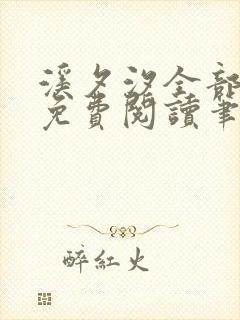 溪夕汐全部
免費閱讀筆
醉紅火